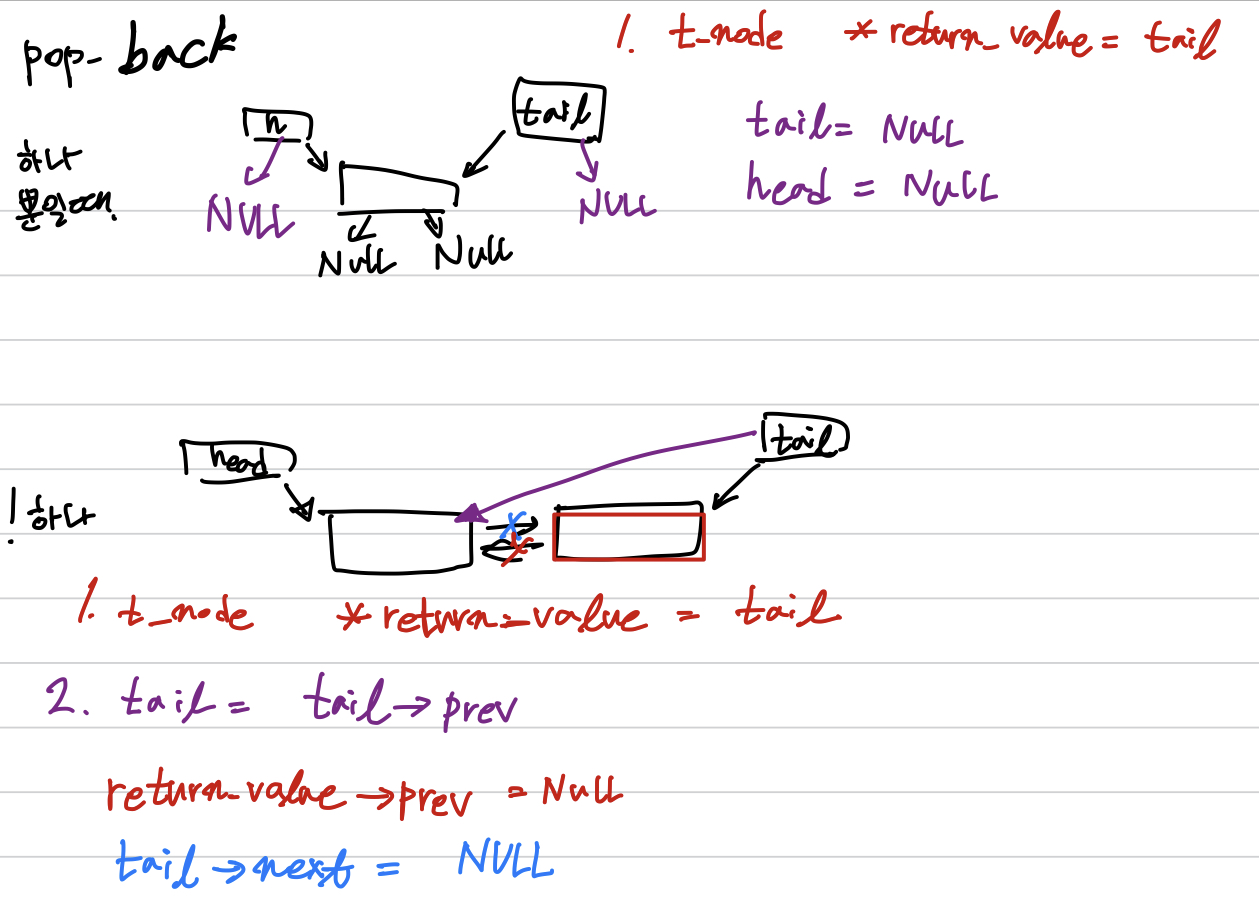 pop_back
1. t_node *return_value = tail
h
tail
tail = NULL
head = NULL
하나
뿐일때.
NULL
NULL
NULL
NULL
head
tail
!하나
1. t_node *return_value = tail
2. tail = tail→prev
return_value→prev = NULL
tail→next = NULL